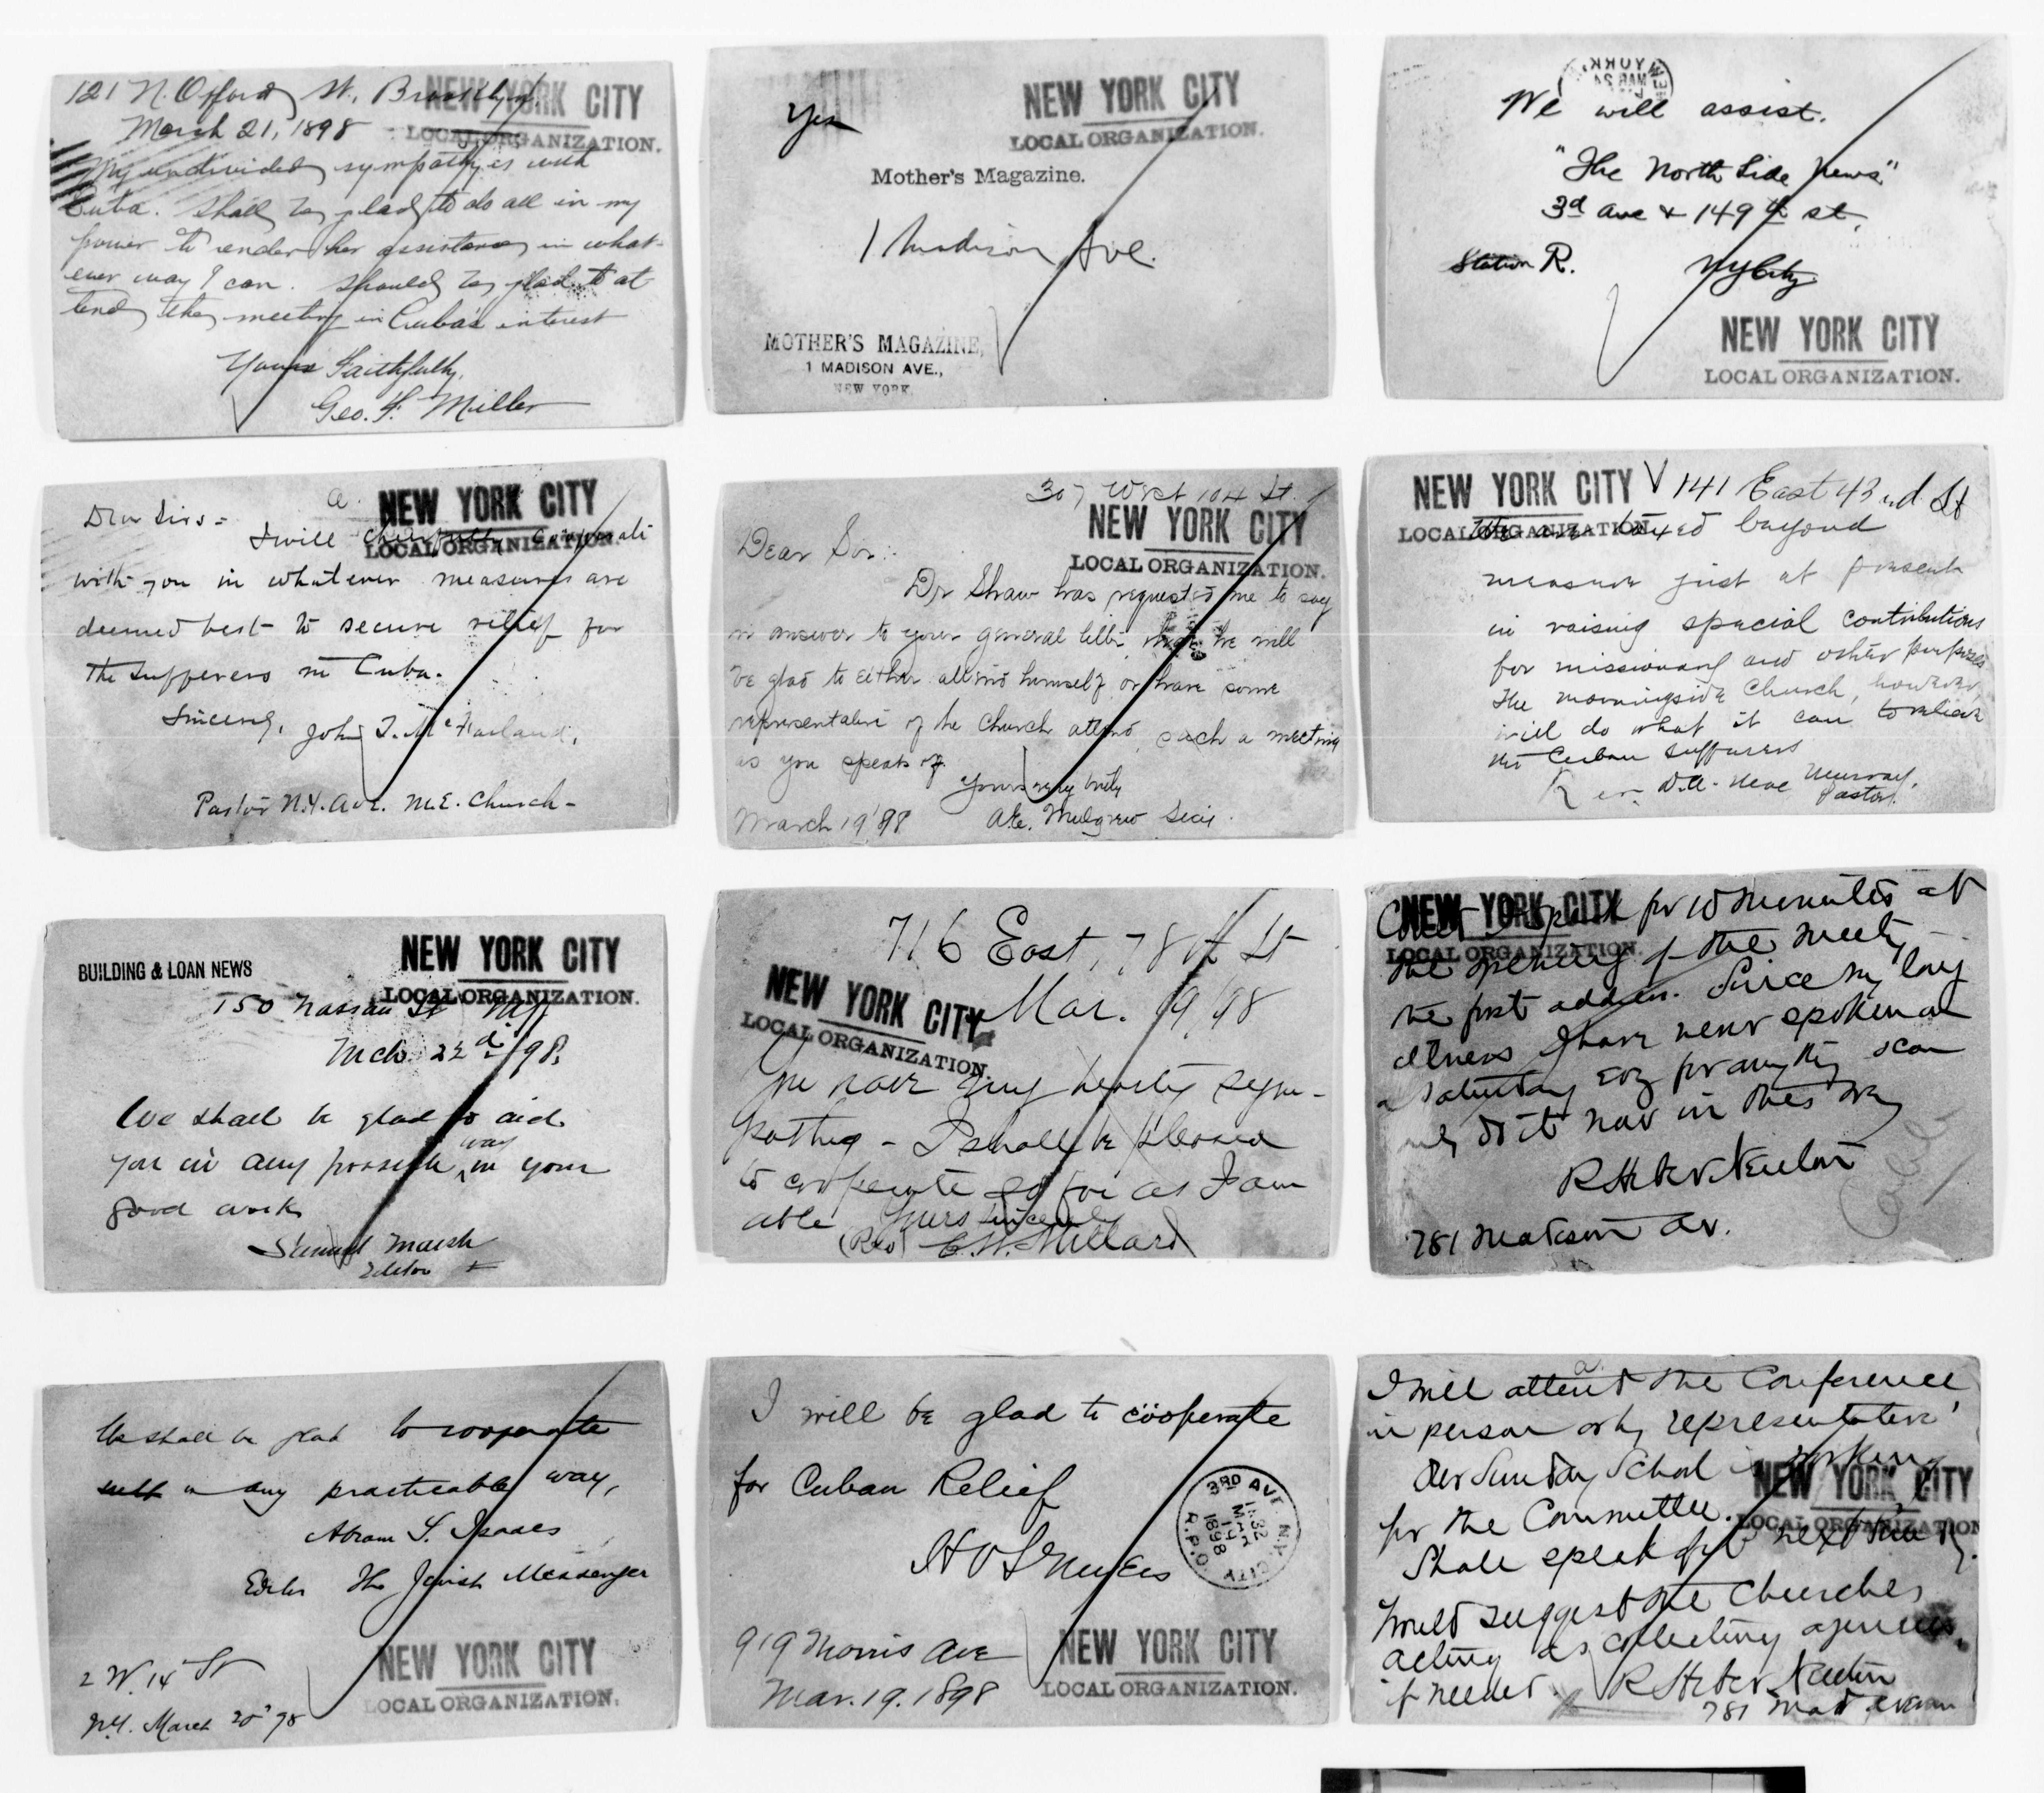 121 N. Oxford St., Brooklyn,
NEW YORK CITY
LOCAL ORGANIZATION.
March 21, 1898
My undivided sympathy is with
Cuba. Shall be glad to do all in my
power to render her assistance in what-
ever way I can. Should be glad to at-
tend the meeting in Cuba's interest
Yours Faithfully,
Geo. F. Miller
Yes
NEW YORK CITY
LOCAL ORGANIZATION.
Mother's Magazine.
1 Madison Ave.
MOTHER'S MAGAZINE,
1 MADISON AVE.,
NEW YORK.
We will assist.
"The North Side News"
3d Ave & 149th st.
Station R. NY City
NEW YORK CITY
LOCAL ORGANIZATION.
Dear Sirs =
NEW YORK CITY
LOCAL ORGANIZATION.
I will cheerfully cooperate
with you in whatever measures are
deemed best to secure relief for
the sufferers in Cuba.
Sincerely, John T. McFarland,
Pastor N.Y. Ave. M.E. Church -
307 West 104 St.
NEW YORK CITY
LOCAL ORGANIZATION.
Dear Sir:-
Dr Shaw has requested me to say
in answer to your general letter that he will
be glad to either attend himself or have some
representative of the Church attend such a meeting
as you speak of.
Yours very truly
March 19 '98 Mulgrew Secy.
NEW YORK CITY
LOCAL ORGANIZATION.
141 East 43nd St
We are taxed beyond
measure just at present
in raising special contributions
for missionary and other purposes
The Morningside Church, however,
will do what it can to relieve
the Cuban sufferers
Rev. D.A. Murray,
Pastor.
BUILDING & LOAN NEWS
NEW YORK CITY
LOCAL ORGANIZATION.
150 Nassau St NY
Mch. 22d /98.
We shall be glad to aid
you in any possible way in your
good work
Samuel Marsh
Editor
716 East, 78th St
Mar. 19/98
NEW YORK CITY
LOCAL ORGANIZATION.
You have my hearty sym-
pathy - I shall be pleased
to cooperate so far as I am
able Yours sincerely
(Rev) E.W. Millard
NEW YORK CITY
LOCAL ORGANIZATION.
speak for 10 minutes at
the opening of the meeting
the first address. Since my long
illness I have never spoken on
a Saturday evg for anything I can
only do it now in this way
R Heber Newton
781 Madison Av.
We shall be glad to cooperate
with in any practicable way,
Abram S. Isaacs
Editor The Jewish Messenger
2 W. 14 St
N.Y. March 20 '98
NEW YORK CITY
LOCAL ORGANIZATION.
I will be glad to coöperate
for Cuban Relief
3RD AVE. N.Y. CITY
MAR
19
1898
R.P.O.
919 Morris Ave
Mar. 19. 1898
NEW YORK CITY
LOCAL ORGANIZATION.
I will attend the Conference
in person or by representative
Our Sunday School is working
NEW YORK CITY
LOCAL ORGANIZATION
for the Committee.
Shall speak for it next Sunday.
Would suggest the Churches
acting as collecting agencies,
if needed. R Heber Newton
781 Mad. Avenue